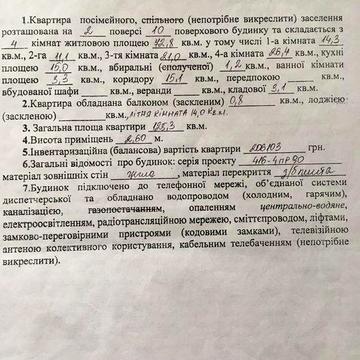 1.Квартира посімейного, спільного (непотрібне викреслити) заселення
розташована на 2 поверсі 10 поверхового будинку та складається з
4 кімнат житловою площею 72,8 кв.м. у тому числі 1-а кімната 14,3
кв.м., 2-га 11,1 кв.м., 3-тя кімната 21,0 кв.м., 4-а кімната 26,4 кв.м., кухні
площею 15,0 кв.м., вбиральні (сполученої) 1,2 кв.м., ванної кімнати
площею 3,3 кв.м., коридору 15,1 кв.м., передпокою кв.м.,
вбудованої шафи кв.м., веранди кв.м., кладової 3,1 кв.м.
2.Квартира обладнана балконом (заскленим) 0,8 кв.м., лоджією
(заскленою) літня кімната 14,0 кв.м.
3. Загальна площа квартири 125,3 кв.м.
4.Висота приміщень 2.60 м.
5.Інвентаризаційна (балансова) вартість квартири грн.
6.Загальні відомості про будинок: серія проекту
матеріал зовнішніх стін матеріал перекриття з/б плита
7.Будинок підключено до телефонної мережі, об'єднаної системи
диспетчерської та обладнано водопроводом (холодним, гарячим),
каналізацією, газопостачанням, опаленням центрально-водяне,
електроосвітленням, радіотрансляційною мережею, сміттєпроводом, ліфтами,
замково-переговорними пристроями (кодовими замками), телевізійною
антеною колективного користування, кабельним телебаченням (непотрібне
викреслити).